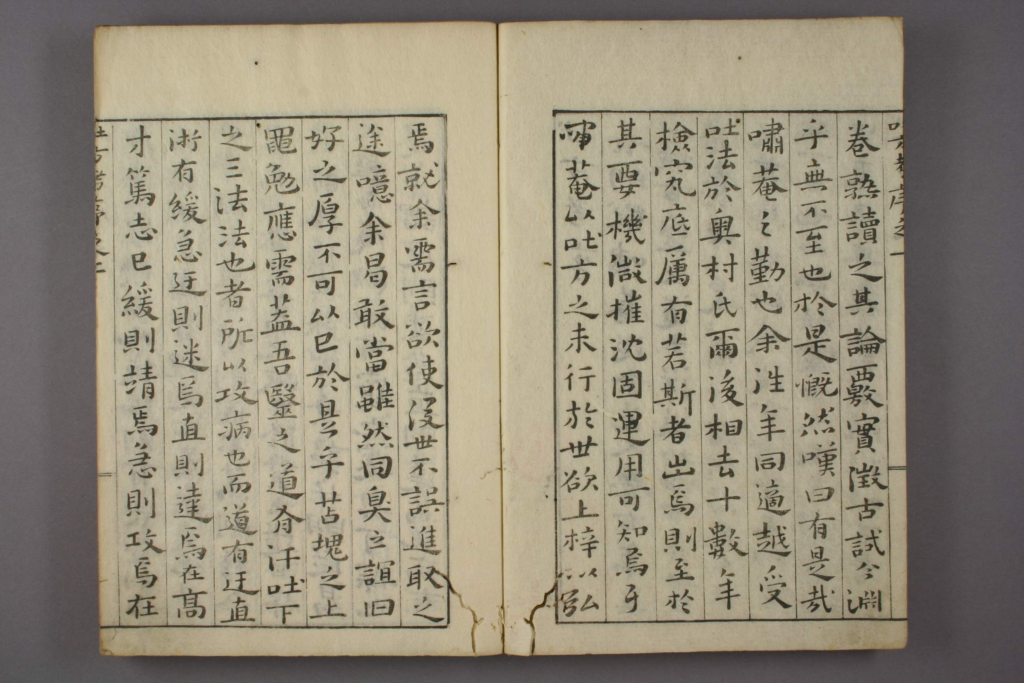 卷熟讀之其論覈實徵古試今淵
乎無不至也於是慨然嘆曰有是哉
嘯菴之勤也余往年同適越受
吐法於奥村氏爾後相去十數年
檢究底厲有若斯者出焉則至於
其要機微摧沈固運用可知焉耳
嘯菴以吐方之未行於世欲上梓以弘
焉就余需言欲使後世不誤進取之
途噫余曷敢當雖然同臭之誼旧
好之厚不可以已於是乎苫塊之上
黽勉應需蓋吾醫之道有汗吐下
之三法法也者所以攻病也而道有迂直
術有緩急迂則迷焉直則達焉在高
才篤志已緩則靖焉急則攻焉在
吐方考序之二